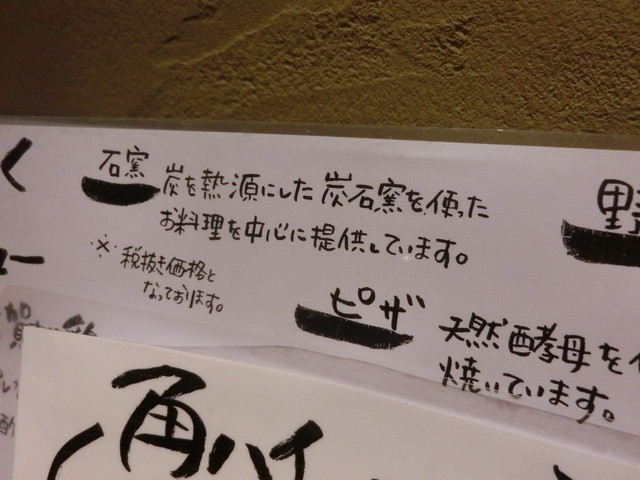 く
石窯
炭を熱源にした炭石窯を使った
お料理を中心に提供しています。
※税抜き価格と
なっております。
野
ュー
ピザ
天然酵母を
焼いています。
角ハイ